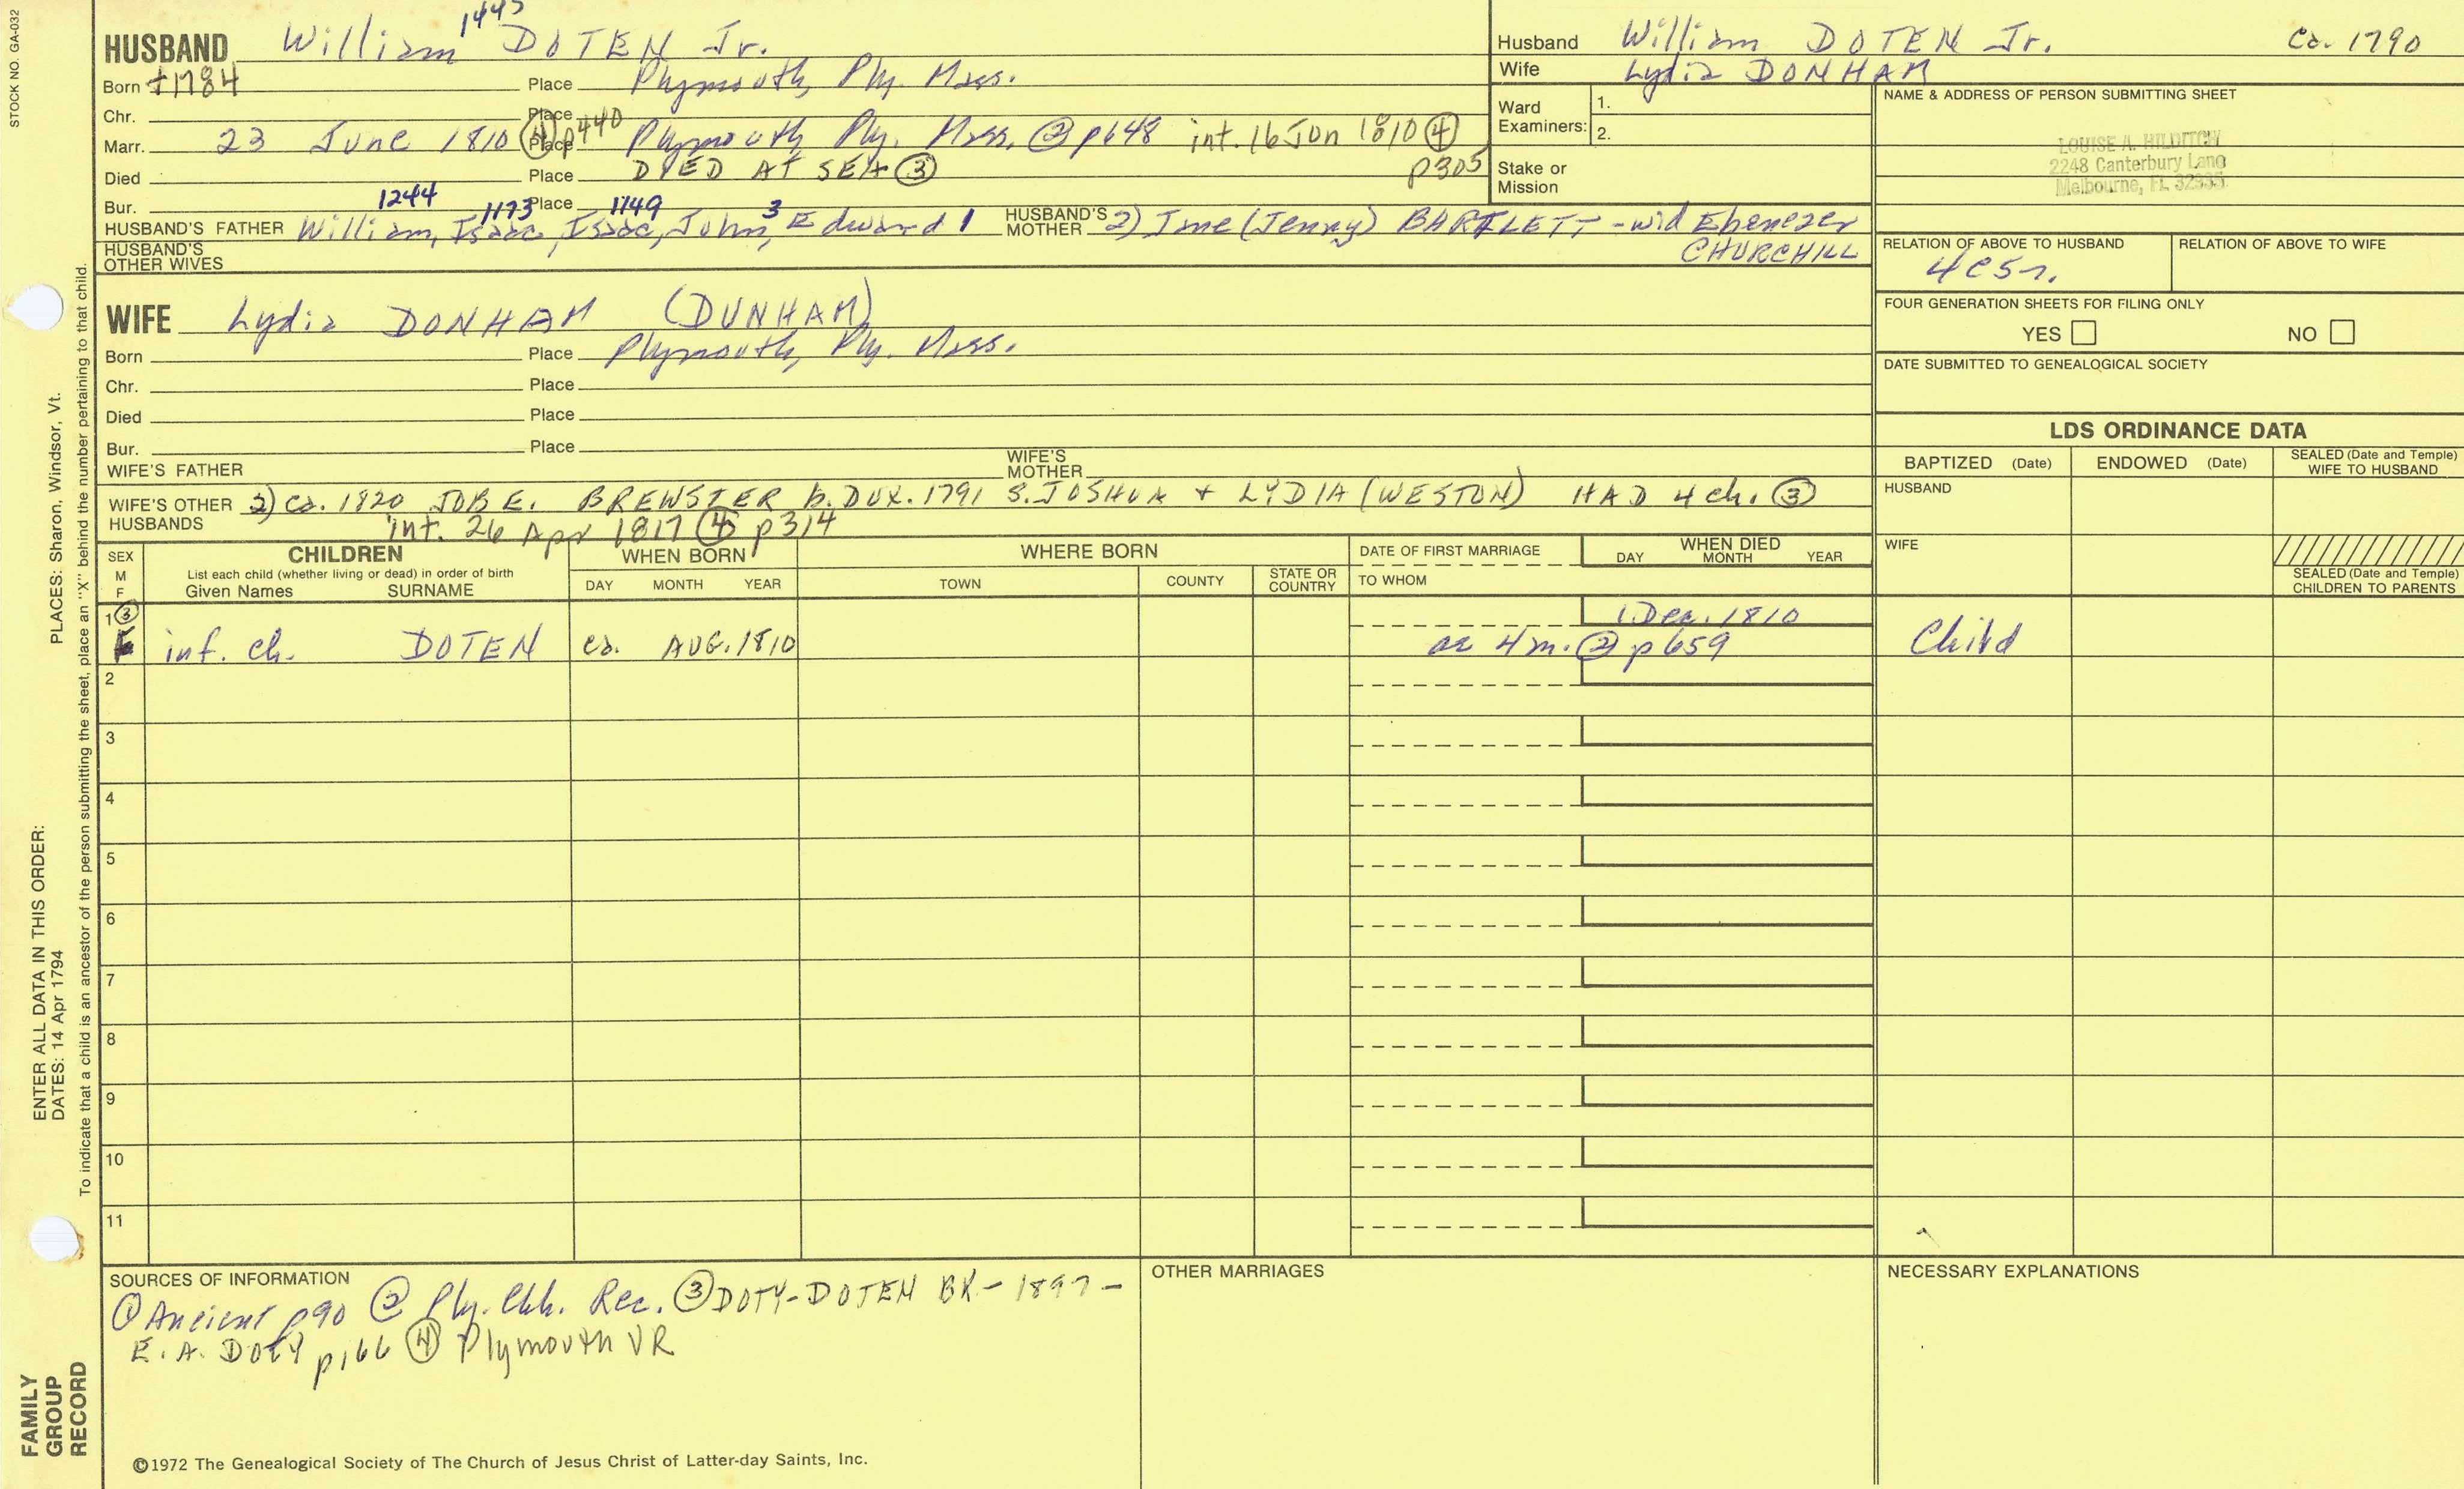 STOCK NO. GA-032
1445
HUSBAND William DOTEN Jr.
Born +1784 Place Plymouth, Ply. Mass.
Chr. Place
Marr. 23 June 1810 ④ p440 Place Plymouth, Ply. Mass. ② p648 int. 16 Jun 1810 ④ p305
Died Place DIED AT SEA ③
Bur. Place
1244 1173 1149 3
HUSBAND'S FATHER William, Isaac, Isaac, John, Edward 1 HUSBAND'S MOTHER 2) Jane (Jenny) BARTLETT - wid Ebenezer CHURCHILL
HUSBAND'S OTHER WIVES
WIFE Lydia DONHAM (DUNHAM)
Born Place Plymouth, Ply. Mass.
Chr. Place
Died Place
Bur. Place
WIFE'S FATHER WIFE'S MOTHER
WIFE'S OTHER HUSBANDS 2) Ca. 1820 JOB E. BREWSTER b. DUX. 1791 S. JOSHUA + LYDIA (WESTON) HAD 4 ch. ③
int. 26 Apr 1817 ④ p314
Husband William DOTEN Jr. Ca. 1790
Wife Lydia DONHAM
Ward Examiners: 1.
2.
Stake or Mission
NAME & ADDRESS OF PERSON SUBMITTING SHEET
LOUISE A. HILDITCH
2248 Canterbury Lane
Melbourne, FL 32935
RELATION OF ABOVE TO HUSBAND RELATION OF ABOVE TO WIFE
4c5r.
FOUR GENERATION SHEETS FOR FILING ONLY
YES NO
DATE SUBMITTED TO GENEALOGICAL SOCIETY
LDS ORDINANCE DATA
BAPTIZED (Date) ENDOWED (Date) SEALED (Date and Temple) WIFE TO HUSBAND
HUSBAND
WIFE
SEALED (Date and Temple) CHILDREN TO PARENTS
SEX M F
CHILDREN
List each child (whether living or dead) in order of birth
Given Names SURNAME
WHEN BORN
DAY MONTH YEAR
WHERE BORN
TOWN COUNTY STATE OR COUNTRY
DATE OF FIRST MARRIAGE
TO WHOM
WHEN DIED
DAY MONTH YEAR
1 ③ F inf. ch. DOTEN ca. AUG. 1810 1 Dec. 1810
ae 4 m. ② p659 Child
2
3
4
5
6
7
8
9
10
11
SOURCES OF INFORMATION
① Ancient p90 ② Ply. Chh. Rec. ③ DOTY-DOTEN BK - 1897 -
E. A. DOTY p166 ④ Plymouth VR
OTHER MARRIAGES
NECESSARY EXPLANATIONS
©1972 The Genealogical Society of The Church of Jesus Christ of Latter-day Saints, Inc.
FAMILY GROUP RECORD
ENTER ALL DATA IN THIS ORDER:
DATES: 14 Apr 1794
PLACES: Sharon, Windsor, Vt.
To indicate that a child is an ancestor of the person submitting the sheet, place an "X" behind the number pertaining to that child.